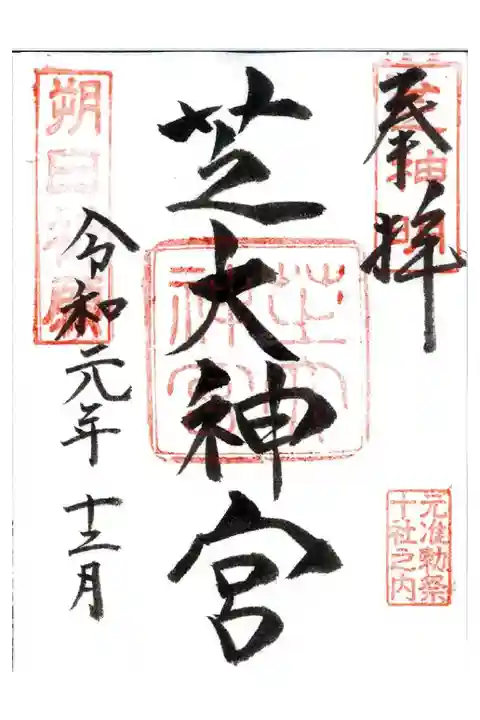 奉拝
芝神明
元准勅祭
十社之内
芝大神宮
朔日祈願
令和元年 十二月